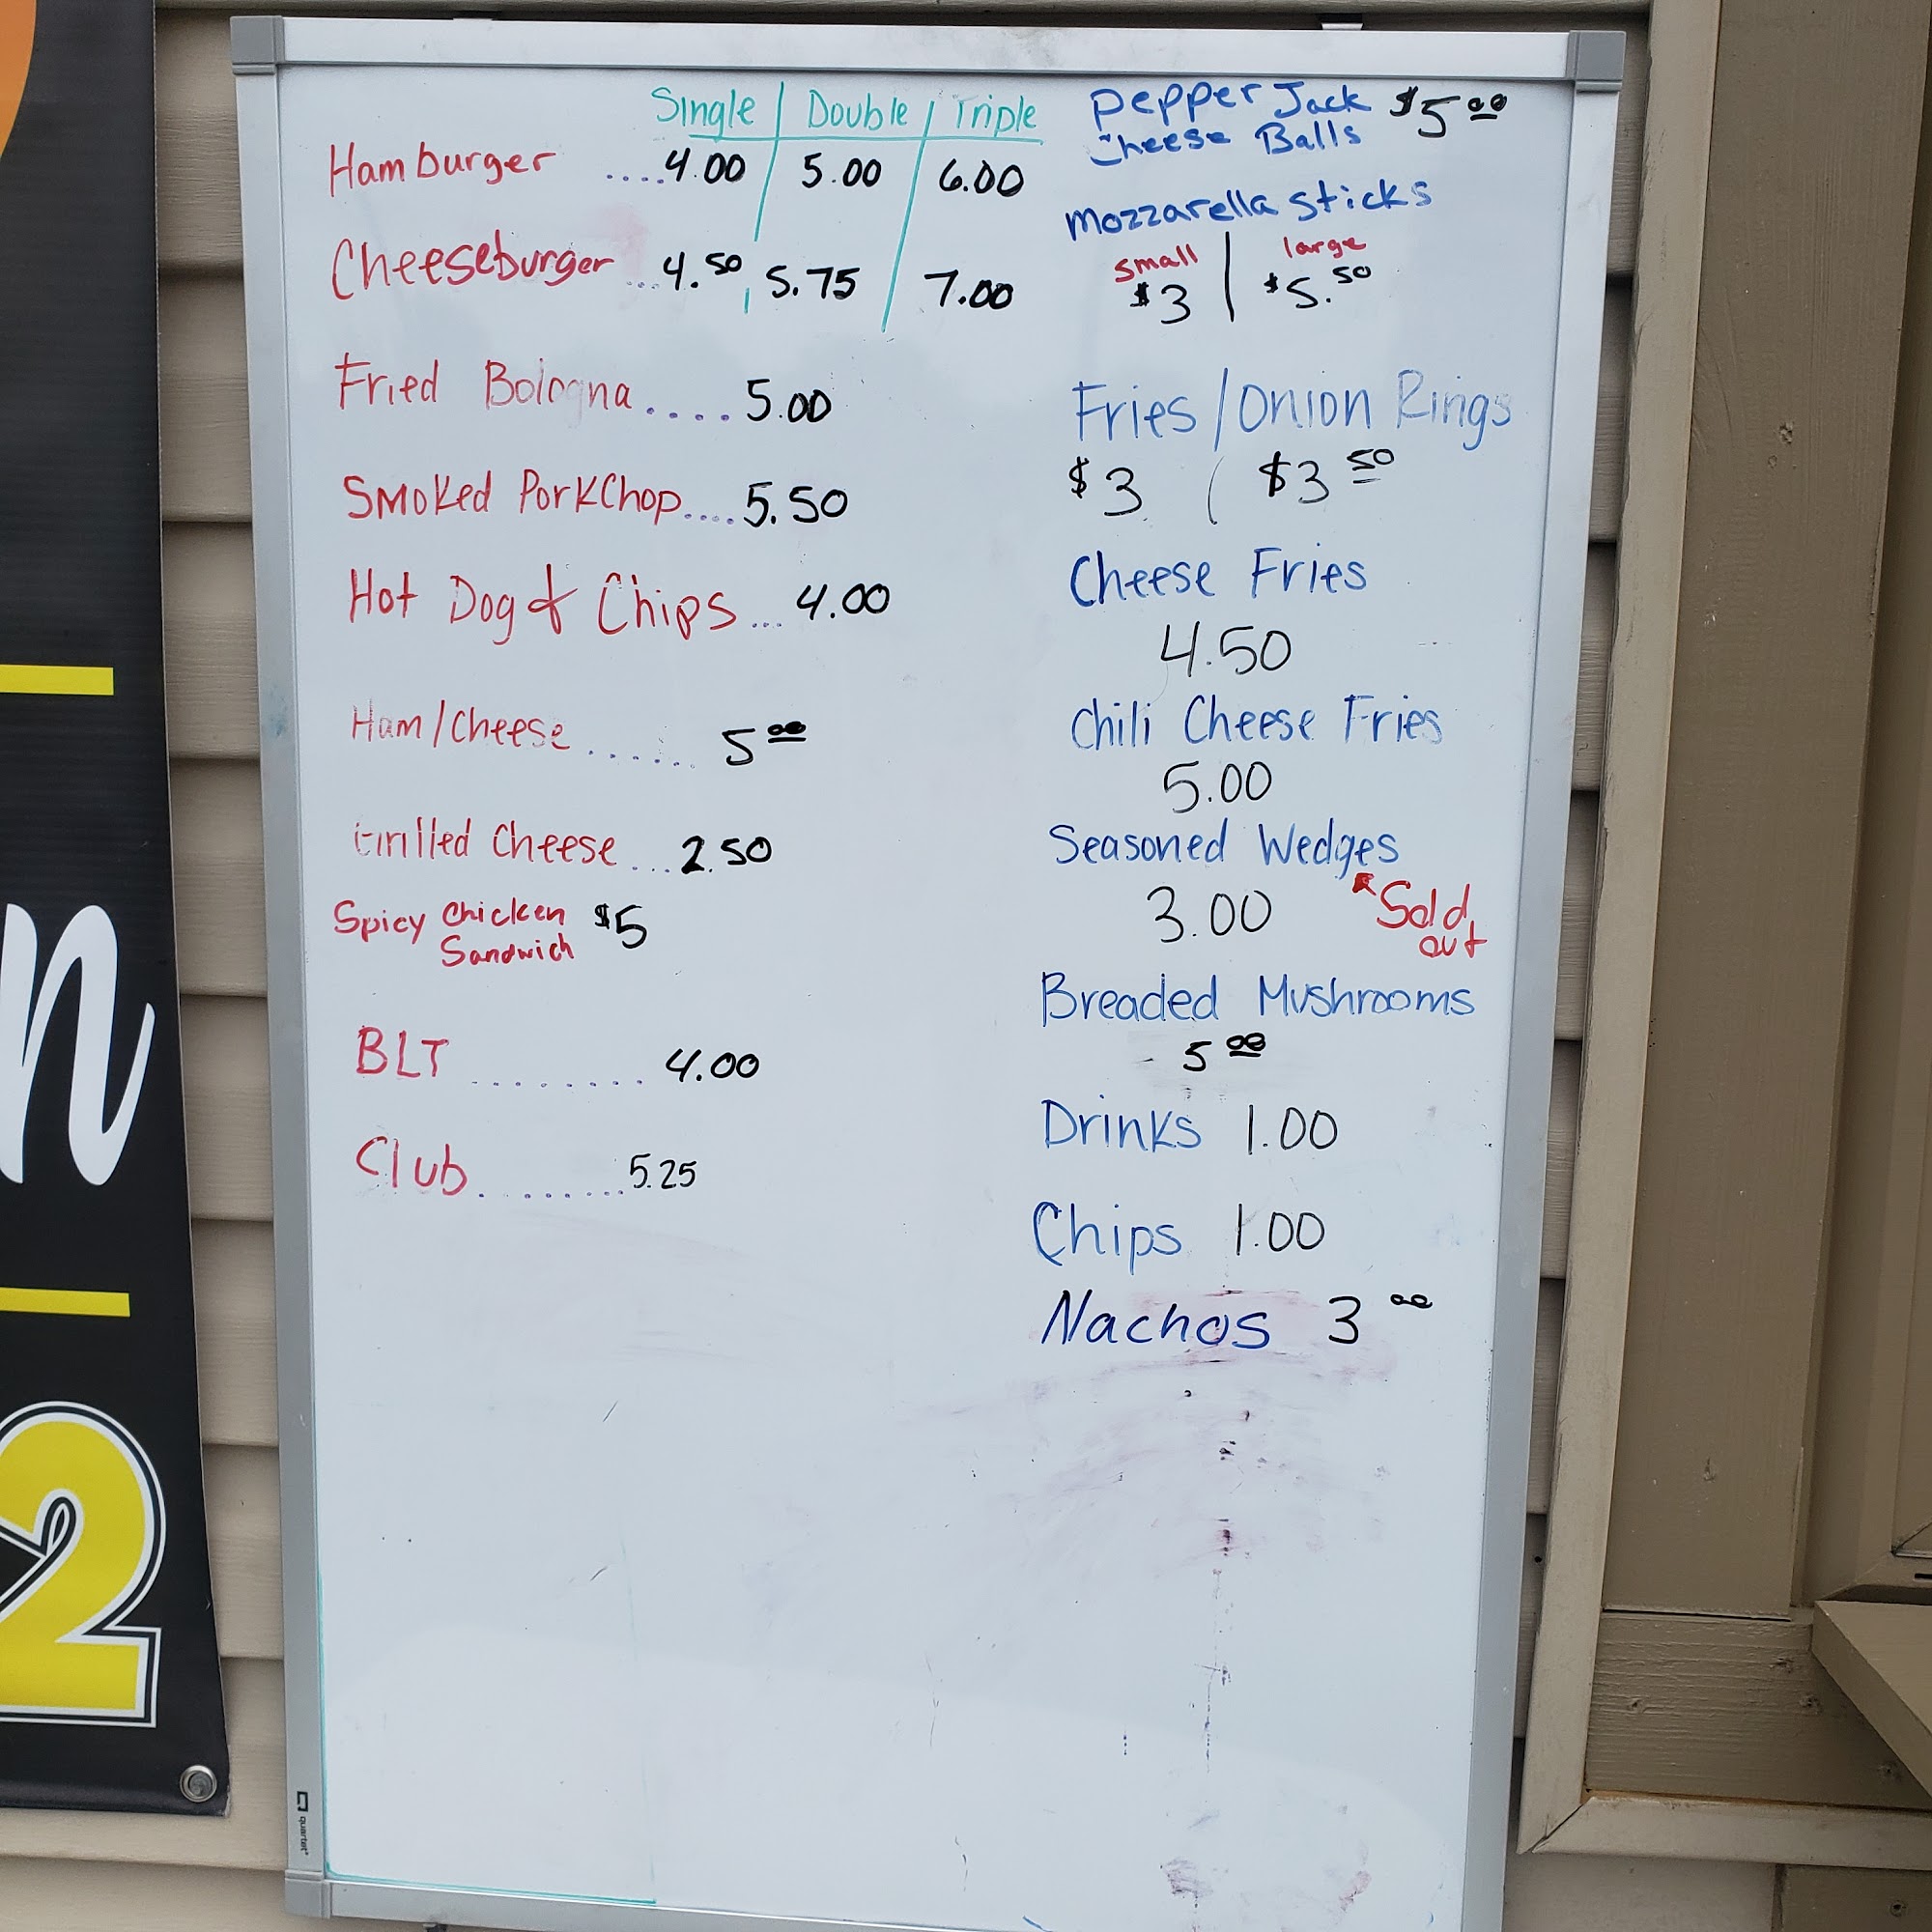 Single | Double | Triple
Hamburger ....4.00 | 5.00 | 6.00
Cheeseburger ...4.50 | 5.75 | 7.00
Fried Bologna....5.00
Smoked PorkChop....5.50
Hot Dog & Chips...4.00
Ham/Cheese ...... 5 00
Grilled Cheese ...2.50
Spicy Chicken $5
Sandwich
BLT ........ 4.00
Club ........ 5.25
Pepper Jack $5 00
Cheese Balls
Mozzarella Sticks
small | large
$3 | $5.50
Fries/Onion Rings
$3 / $3 50
Cheese Fries
4.50
Chili Cheese Fries
5.00
Seasoned Wedges
3.00 Sold
out
Breaded Mushrooms
5 00
Drinks 1.00
Chips 1.00
Nachos 3 00
n
2
quartet